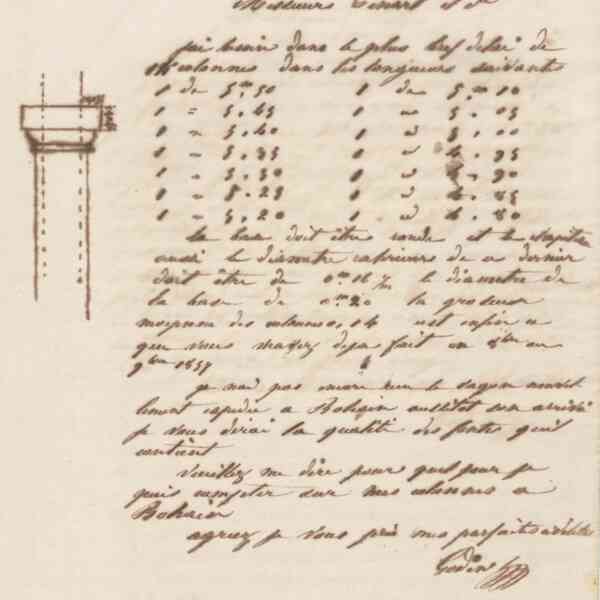 Messieurs
j'ai besoin dans le plus bref delai de
colonnes dans les longueurs suivantes
1 de 5m,50 1 de 5,m10
1 " 5,45 1 " 5,05
1 " 5,40 1 " 5,00
1 " 5,35 1 " 4,95
1 " 5,30 1 " 4,90
1 " 5,25 1 " 4,85
1 " 5,20 1 " 4,80
la base doit être ronde et le chapiteau
aussi le diametre de ce dernier
doit être de 0m16 le diametre de
la base de 0m20 la grosseur
moyenne des colonnes 14 est enfin ce
que vous m'avez deja fait en 8bre ou
9bre 1857
je n'ai pas encore reçu le wagon
expedié a Bohain aussitot son arrivé
je vous dirai la qualité des fontes qu'il
contient
Veuillez me dire pour quel jour je
puis compter sur mes colonnes a
Bohain
agreez je vous prie mes parfaites
Godin